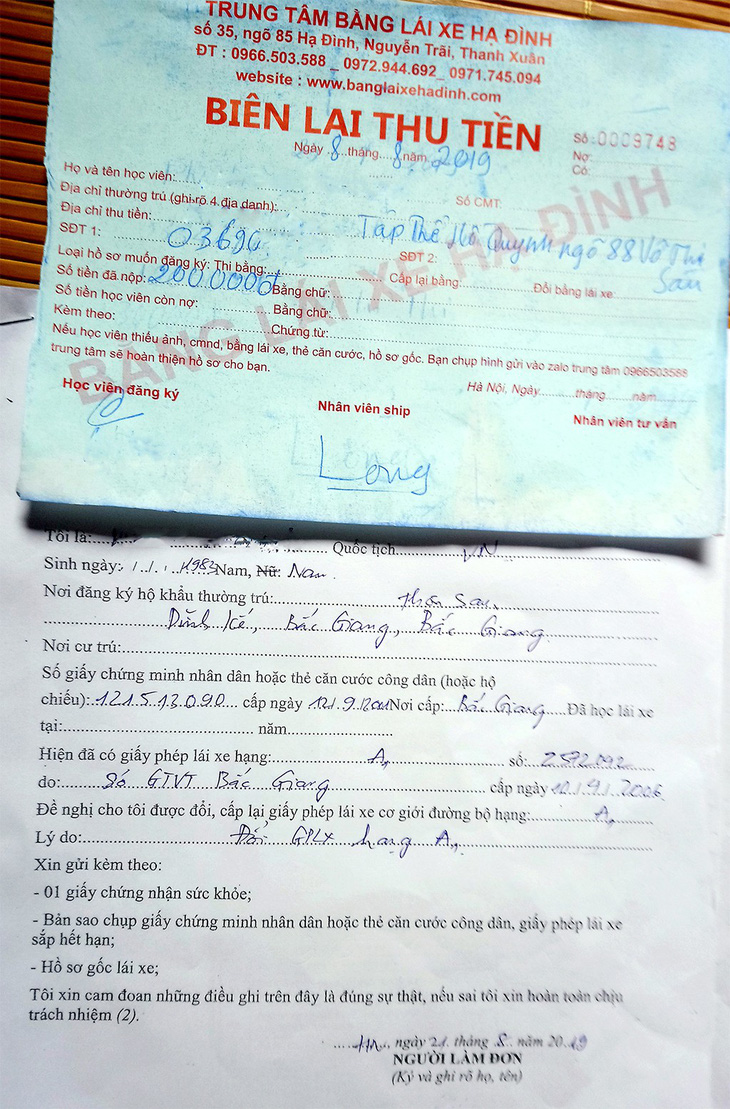 TRUNG TÂM BẰNG LÁI XE HẠ ĐÌNH
số 35, ngõ 85 Hạ Đình, Nguyễn Trãi, Thanh Xuân
ĐT : 0966.503.588 _ 0972.944.692_ 0971.745.094
website : www.banglaixehadinh.com
BIÊN LAI THU TIỀN
Số :0009748
Ngày 8 tháng 8 năm 2019
Nợ:
Có:
Họ và tên học viên:
Địa chỉ thường trú (ghi rõ 4 địa danh): Số CMT:
Địa chỉ thu tiền: Tập Thể Hồ Quỳnh ngõ 88 Võ Thị Sáu
SĐT 1: 03696 SĐT 2:
Loại hồ sơ muốn đăng ký: Thi bằng: Cấp lại bằng: Đổi bằng lái xe:
Số tiền đã nộp: 200000đ Bằng chữ:
Số tiền học viên còn nợ: Bằng chữ:
Kèm theo: Chứng từ:
Nếu học viên thiếu ảnh, cmnd, bằng lái xe, thẻ căn cước, hồ sơ gốc. Bạn chụp hình gửi vào zalo trung tâm 0966503588
trung tâm sẽ hoàn thiện hồ sơ cho bạn.
Hà Nội, Ngày tháng năm
Học viên đăng ký Nhân viên ship Nhân viên tư vấn
Long
BẰNG LÁI XE HẠ ĐÌNH
Tôi là: Quốc tịch VN
Sinh ngày: 1983 Nam, Nữ: Nam
Nơi đăng ký hộ khẩu thường trú:
Dĩnh Kế, Bắc Giang, Bắc Giang
Nơi cư trú:
Số giấy chứng minh nhân dân hoặc thẻ căn cước công dân (hoặc hộ
chiếu): 121513090 cấp ngày Nơi cấp: Bắc Giang Đã học lái xe
tại: năm
Hiện đã có giấy phép lái xe hạng: A1 số: 2592092
do: Sở GTVT Bắc Giang cấp ngày
Đề nghị cho tôi được đổi, cấp lại giấy phép lái xe cơ giới đường bộ hạng: A1
Lý do: Đổi GPLX hạng A1
Xin gửi kèm theo:
- 01 giấy chứng nhận sức khỏe;
- Bản sao chụp giấy chứng minh nhân dân hoặc thẻ căn cước công dân, giấy phép lái xe
sắp hết hạn;
- Hồ sơ gốc lái xe;
Tôi xin cam đoan những điều ghi trên đây là đúng sự thật, nếu sai tôi xin hoàn toàn chịu
trách nhiệm (2).
HN, ngày 21 tháng 8 năm 2019
NGƯỜI LÀM ĐƠN
(Ký và ghi rõ họ, tên)